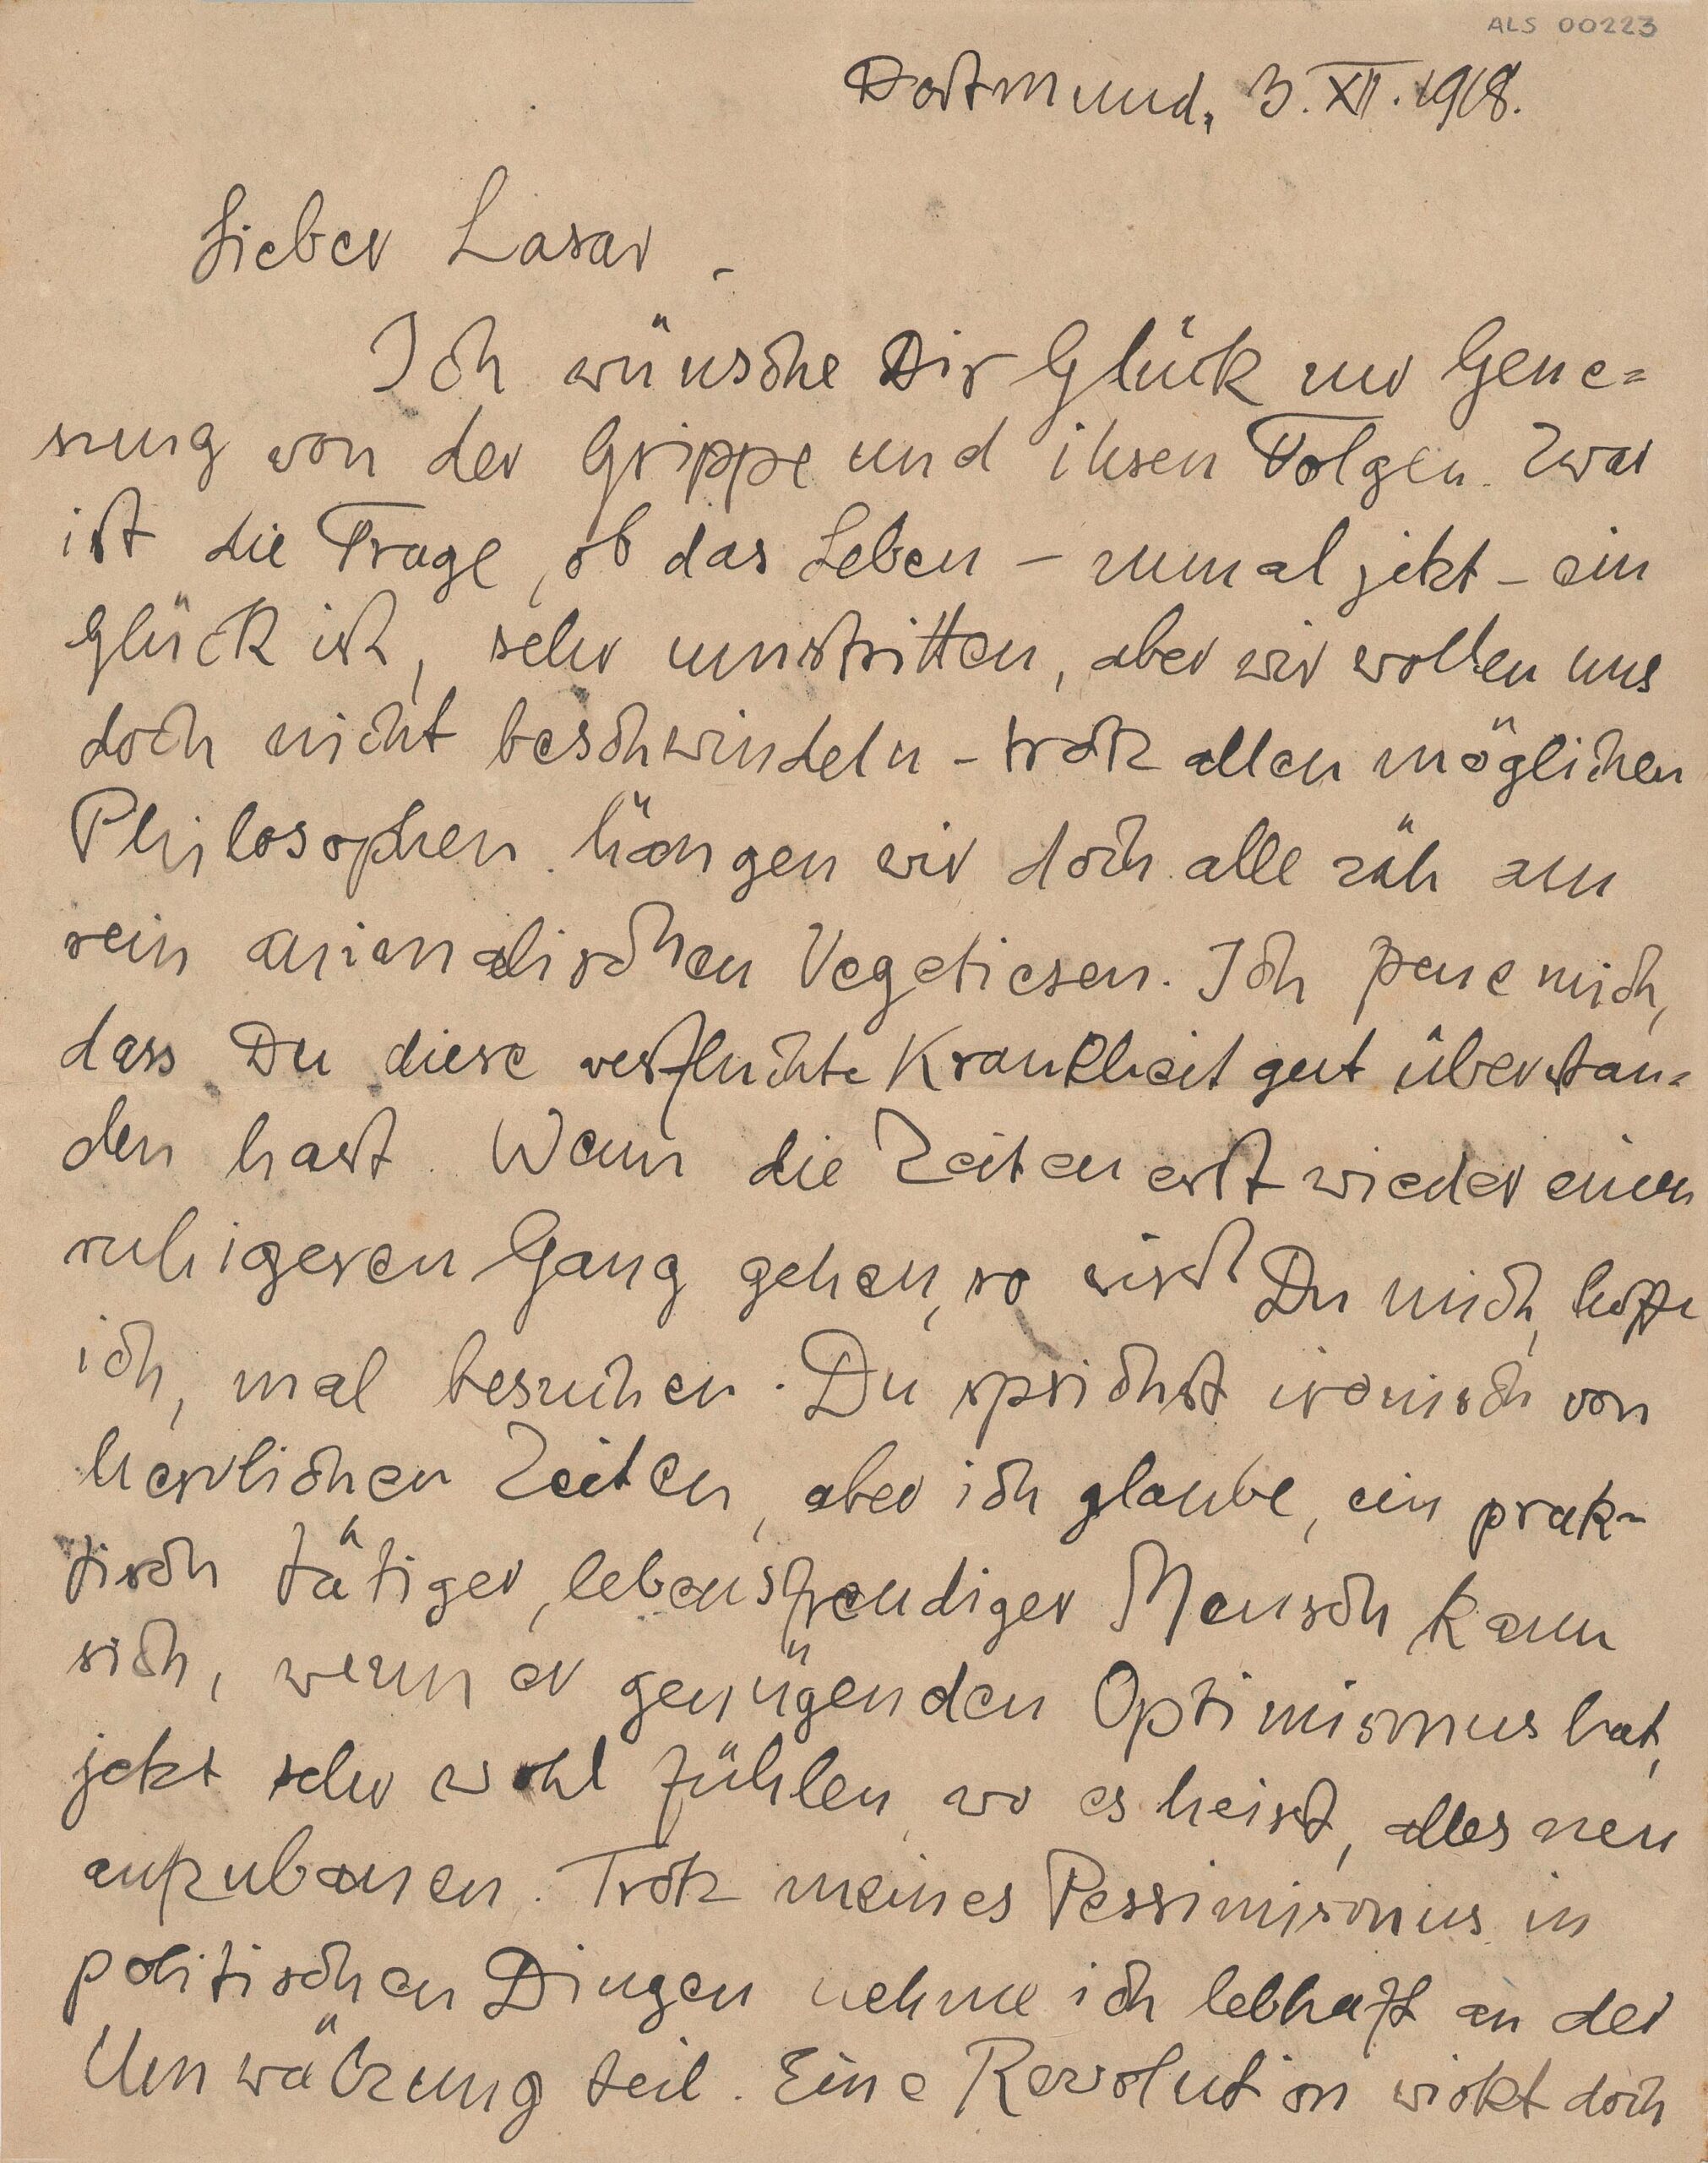 ALS 00223
Dortmund, 3. XII. 1918.
Lieber Lasar -
Ich wünsche Dir Glück zur Gene=
sung von der Grippe und ihren Folgen. Zwar
ist die Frage, ob das Leben - zumal jetzt - ein
Glück ist, sehr umstritten, aber wir wollen uns
doch nicht beschwindeln - trotz allen möglichen
Philosophen hängen wir doch alle zäh am
rein animalischen Vegetieren. Ich freue mich,
dass Du diese verfluchte Krankheit gut überstan=
den hast. Wenn die Zeiten erst wieder einen
ruhigeren Gang gehen, so wirst Du mich, hoffe
ich, mal besuchen. Du sprichst ironisch von
herrlichen Zeiten, aber ich glaube, ein prak-
tisch tätiger, lebensfreudiger Mensch kann
sich, wenn er genügenden Optimismus hat,
jetzt sehr wohl fühlen, wo es heisst, alles neu
aufzubauen. Trotz meines Pessimismus in
politischen Dingen nehme ich lebhaft an der
Umwälzung teil. Eine Revolution wirkt doch